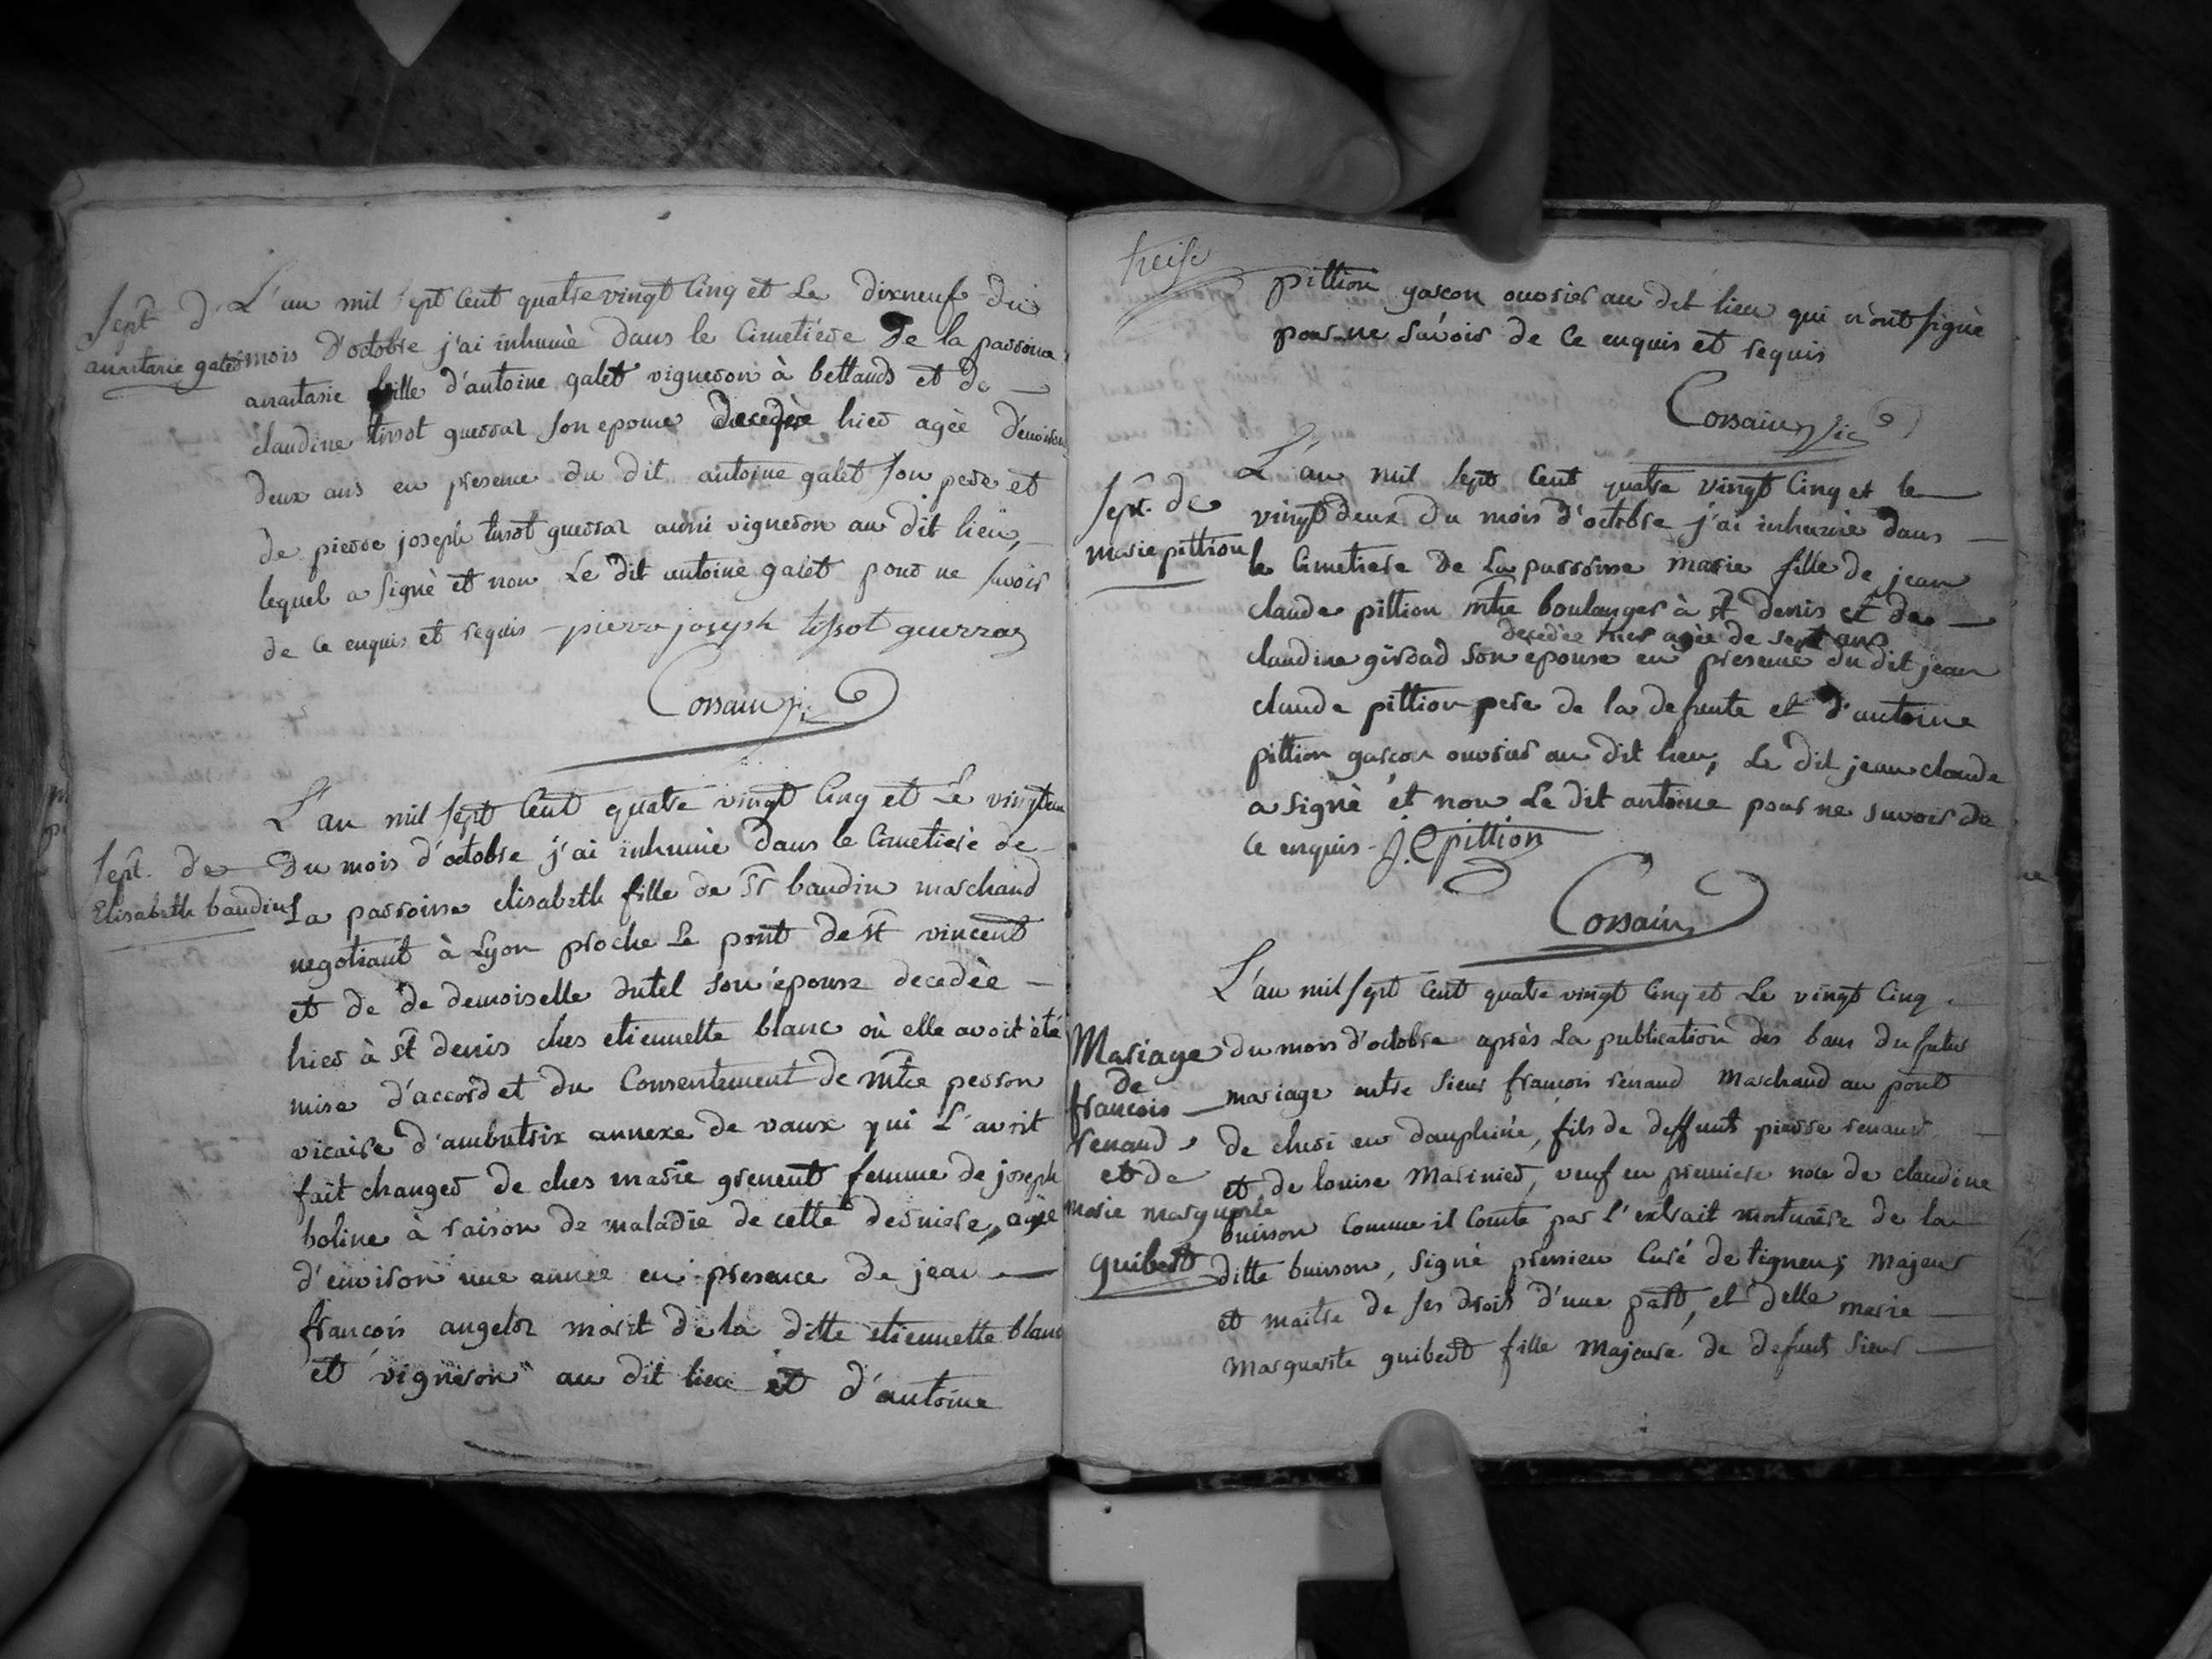 Sept. d'
anastasie galet
L'an mil sept cent quatre vingt cinq et le dixneuf du
mois d'octobre j'ai inhumè dans le cimetiére de la parroisse
anastasie fille d'antoine galet vigneron à bettand et de
claudine tissot guerraz son epouse decedèe hier agèe d'environ
deux ans en presence du dit antoine galet son pere et
de pierre joseph tissot guerraz aussi vigneron au dit lieu,
lequel a signè et non le dit antoine galet pour ne savoir
de ce enquis et requis - pierre joseph tissot guerraz
Sept. de
Elisabeth baudin
L'an mil sept cent quatre vingt cinq et le vingt un
du mois d'octobre j'ai inhumèe dans le cimetiere de
la parroisse elisabeth fille de Sr baudin marchand
negotiant à Lyon proche le pont de st vincent
et de de demoiselle dutel son épouse decedèe
hier à st denis ches etiennette blanc où elle avoit été
mise d'accord et du consentement de mtre perron
vicaire d'ambutrix annexe de vaux qui l'avoit
fait changer de ches marie grenent femme de joseph
boline à raison de maladie de cette derniere, agèe
d'environ une année en presence de jean
françois angeloz marit de la ditte etiennette blanc
et vigneron au dit lieu et d'antoine
treise
pittion garcon ouvrier au dit lieu qui n'ont signè
pour ne sávoir de ce enquis et requis
Sept. de
marie pittion
L'an mil sept cent quatre vingt cinq et le
vingt deux du mois d'octobre j'ai inhumée dans
le cimetiere de la parroisse marie fille de jean
claude pittion mtre boulanger à st denis et de
decedèe hier agèe de sept ans
claudine giroad son epouse en presence du dit jean
claude pittion pere de la defunte et d'antoine
pittion garcon ouvrier au dit lieu, le dit jean claude
a signè et non le dit antoine pour ne savoir de
ce enquis - J. C pittion
Mariage
de
francois
renaud
et de
marie marguerite
guibert
L'an mil sept cent quatre vingt cinq et le vingt cinq
du mois d'octobre après la publication des bans du futur
mariage entre sieur francois renaud marchand au pont
de cheri en dauphiné, fils de deffunts pierre renaud
et de louise Marinier, veuf en premiere noce de claudine
buisson comme il conste par l'extrait mortuaire de la
ditte buisson, signé curé de tignieu; majeur
et maitre de ses droits d'une part, et delle marie
marguerite guibert fille majeure de defunt sieur